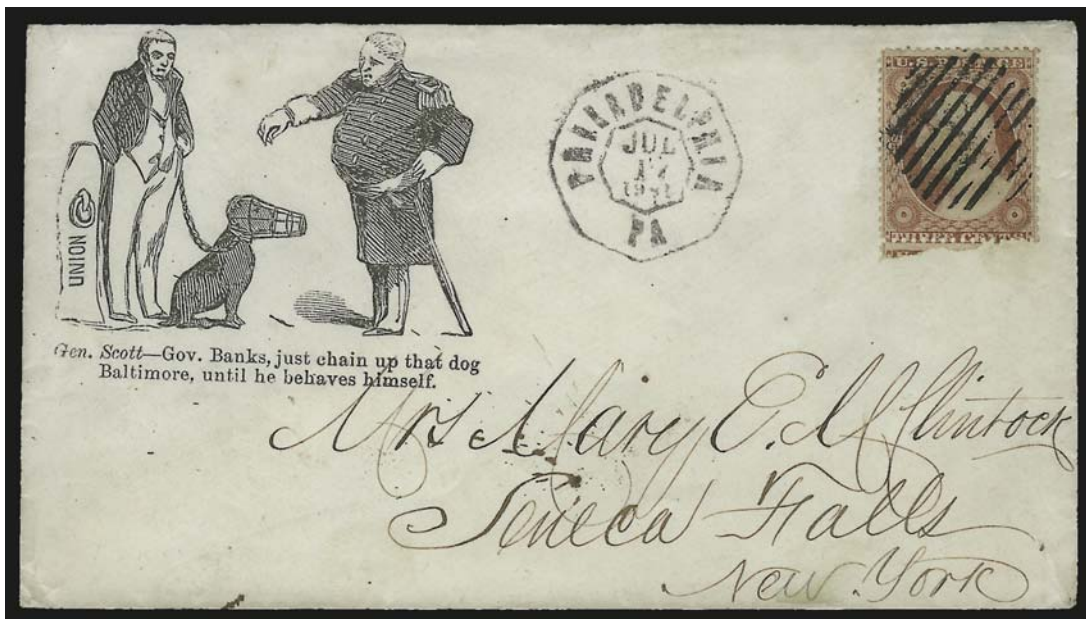 UNION
Gen. Scott—Gov. Banks, just chain up that dog
Baltimore, until he behaves himself.
PHILADELPHIA
JUL
17
1861
PA
U.S. POSTAGE
THREE CENTS
Mrs Mary E. McClintock
Seneca Falls
New York